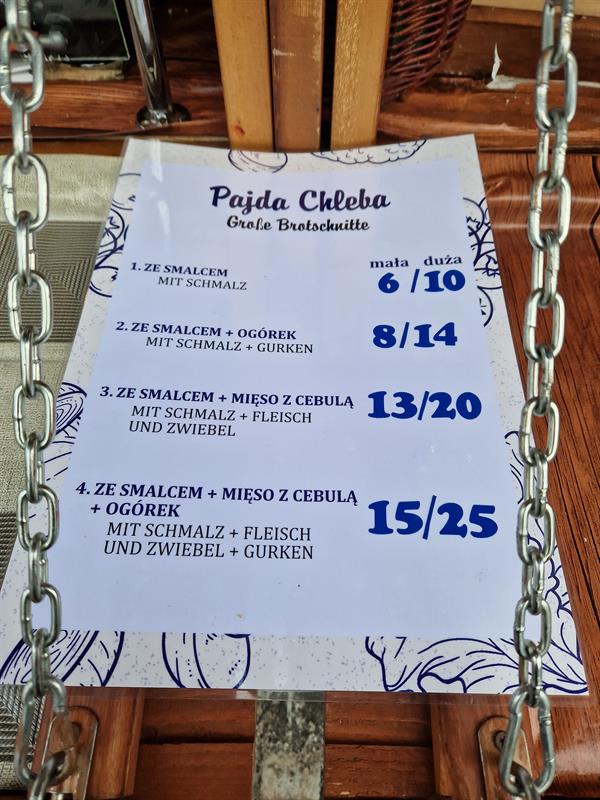 Pajda Chleba
Große Brotschnitte
mała duża
1. ZE SMALCEM 6/10
MIT SCHMALZ
2. ZE SMALCEM + OGÓREK 8/14
MIT SCHMALZ + GURKEN
3. ZE SMALCEM + MIĘSO Z CEBULĄ 13/20
MIT SCHMALZ + FLEISCH
UND ZWIEBEL
4. ZE SMALCEM + MIĘSO Z CEBULĄ 15/25
+ OGÓREK
MIT SCHMALZ + FLEISCH
UND ZWIEBEL + GURKEN